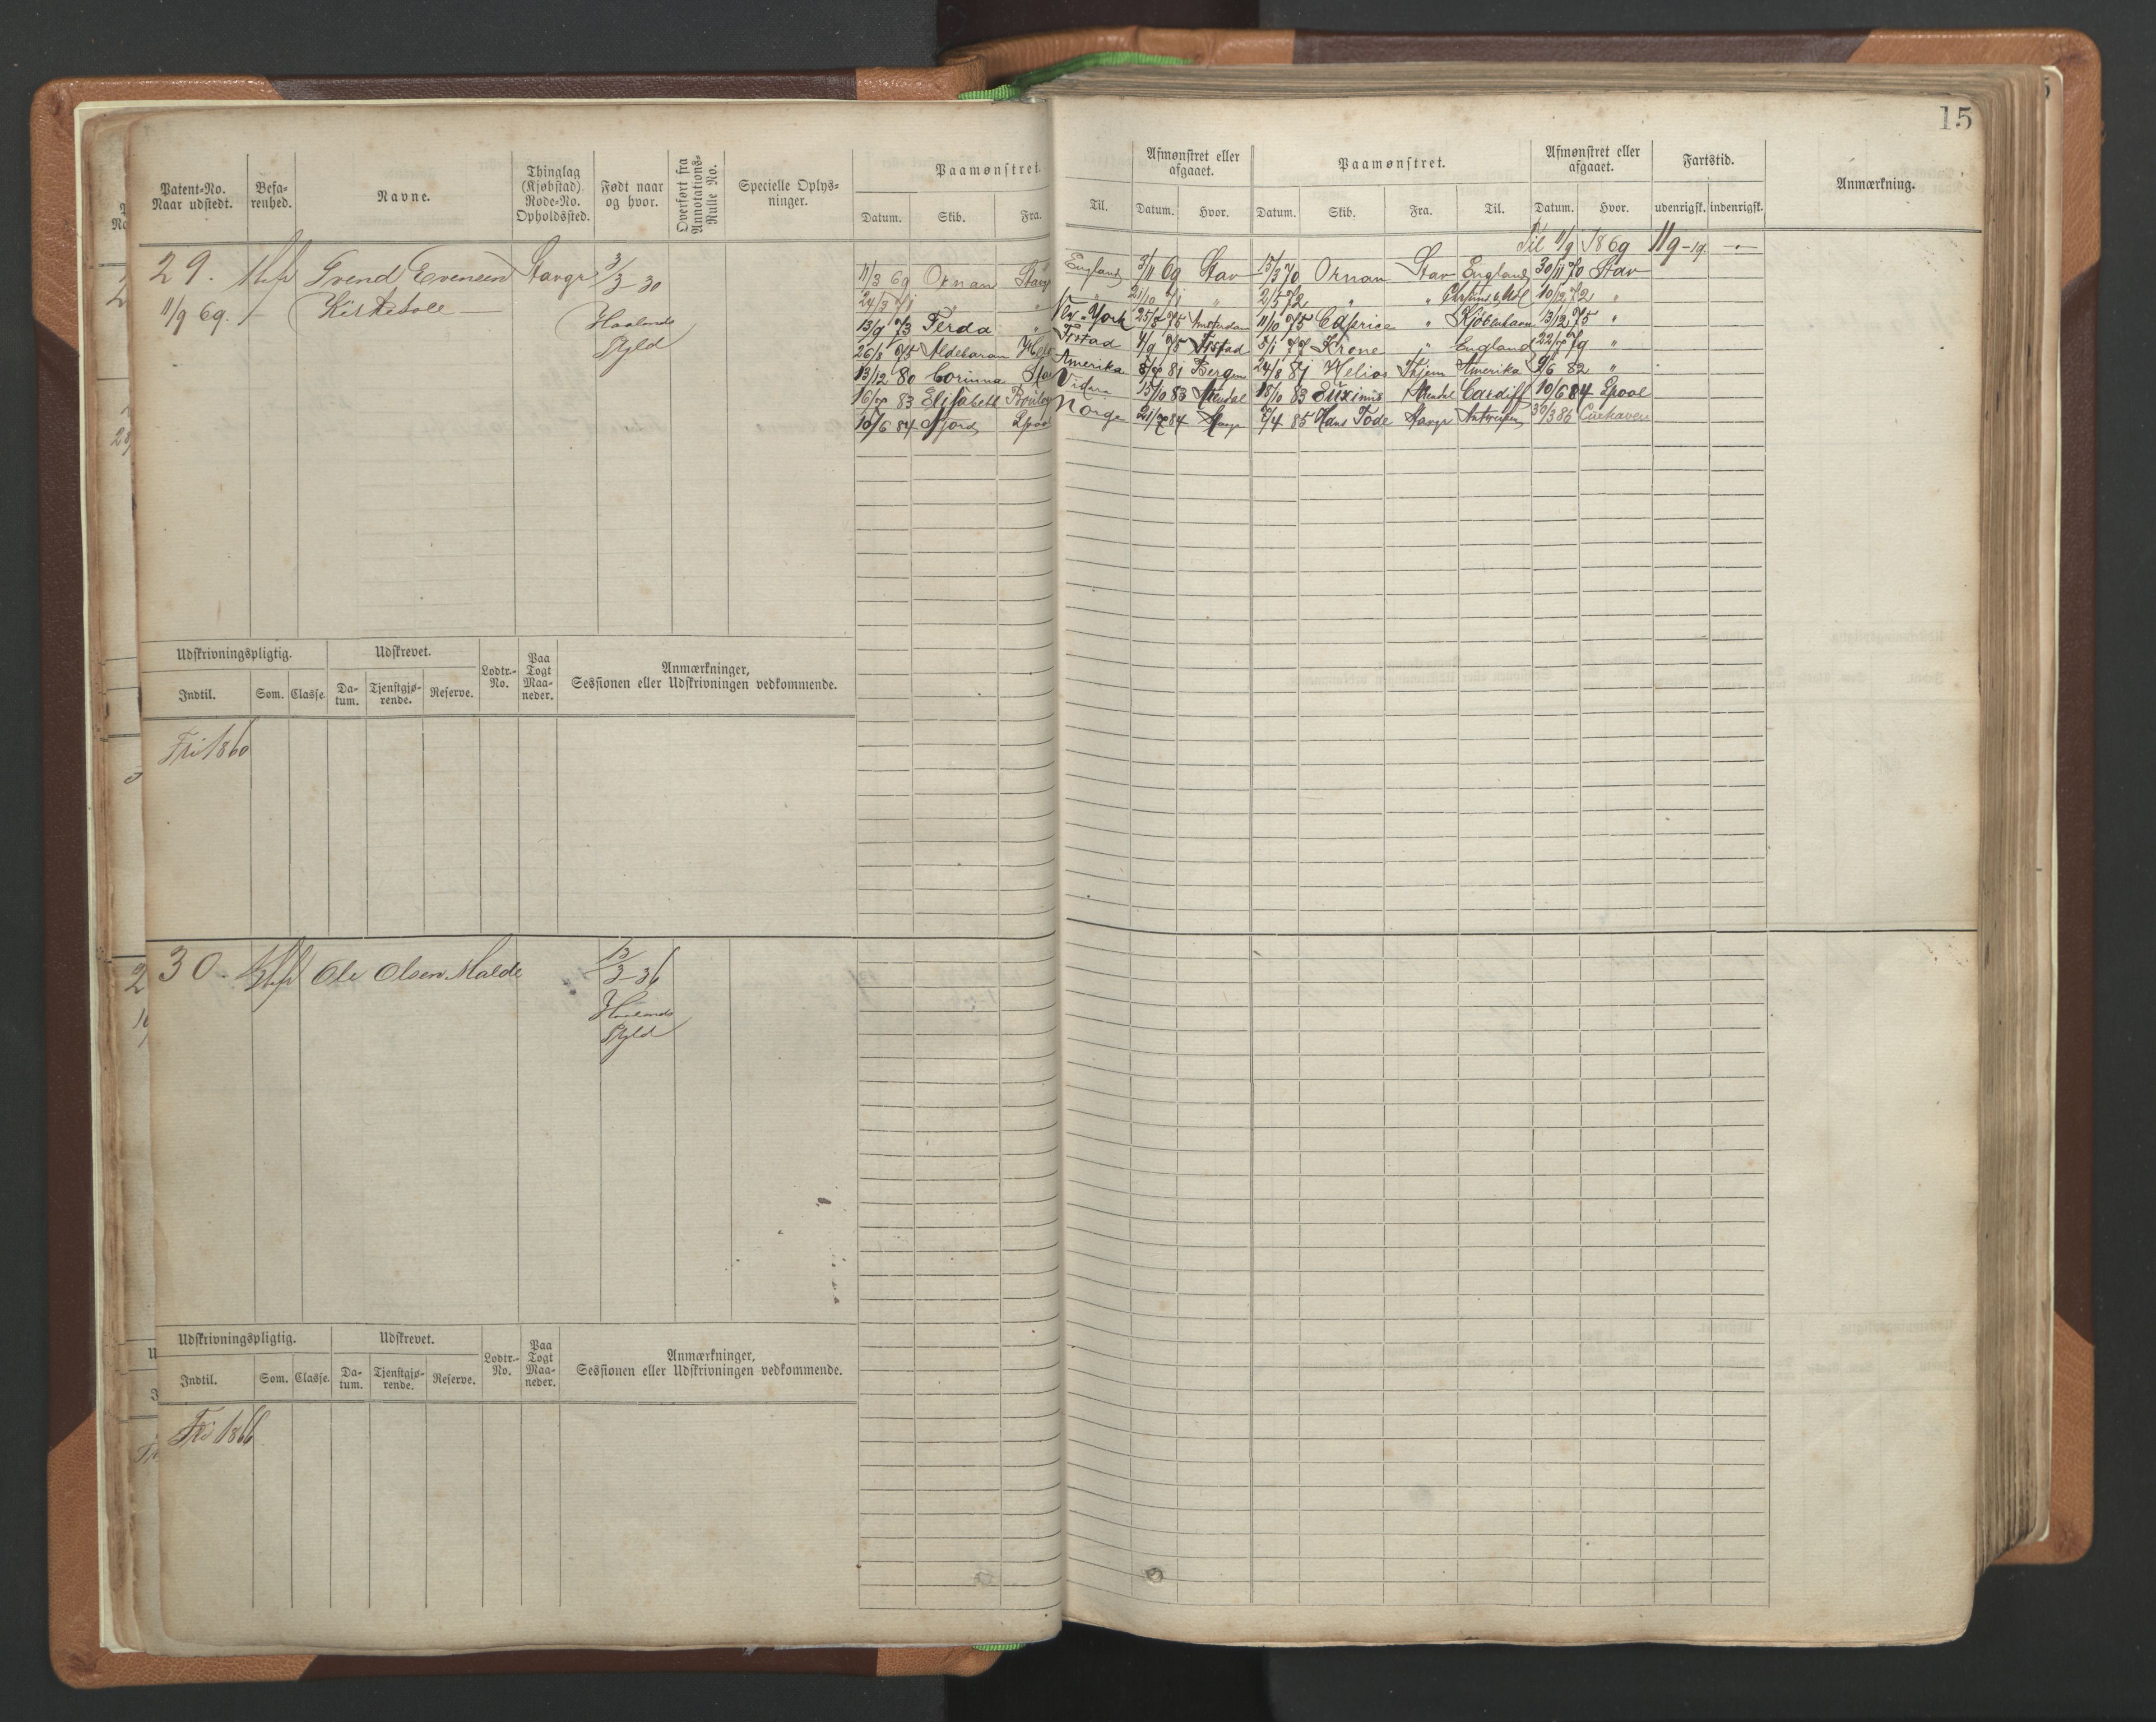 15
Patent-No. Naar udstedt.
Befarenhed.
Navne.
Thinglag (Kjøbstad) Rode-No. Opholdssted.
Født naar og hvor.
Overført fra Annotations-Rulle No.
Specielle Oplysninger.
Paamønstret.
Datum. Skib. Fra. Til.
Afmønstret eller afgaaet.
Datum. Hvor.
Paamønstret.
Datum. Skib. Fra. Til.
Afmønstret eller afgaaet.
Datum. Hvor.
Fartstid.
udenrigsk. indenrigsk.
Anmærkning.
Til 11/9 1869
29. Svend Evensen Stavgr 3/3 30
11/9 69. Kirketole Haalands Skjld
11/3 69 Ornan Stavg England 3/11 69 Stav 15/3 70 Ornan Stav England 30/11 70 Stav
24/3 71 " " " 21/10 71 " 2/5 72 " " 10/12 72 "
13/9 73 Ferda " Nw-York 25/5 75 Amsterdam 11/10 75 Caprice " Kjøbenhavn 13/12 75 "
26/8 75 Aldebaran Fistad 4/9 75 Fistad 5/1 77 Krone " England "
13/12 80 Corinna Stav Amerika Bergen 24/8 81 Helios Thjem Amerika 9/6 82 "
83 Elisabeth 15/10 83 Arendal 18/10 83 Euxinus Arendal Cardiff 10/6 84 Lpool
10/6 84 Fjord Lpool Norge Stavgr 7/4 85 Hans Tode Stavgr Antwerpen 30/3 86 Cuxhaven
Udskrivningspligtig.
Indtil. Som. Classe.
Udskrevet.
Datum. Tjenstgjørende. Reserve.
Lodtr.-No.
Paa Togt Maaneder.
Anmærkninger, Sessionen eller Udskrivningen vedkommende.
Fri 1860
30. Ole Olsen Malde 13/3 36
Haalands
Skjld
Udskrivningspligtig.
Indtil. Som. Classe.
Udskrevet.
Datum. Tjenstgjørende. Reserve.
Lodtr.-No.
Paa Togt Maaneder.
Anmærkninger, Sessionen eller Udskrivningen vedkommende.
Fri 1866